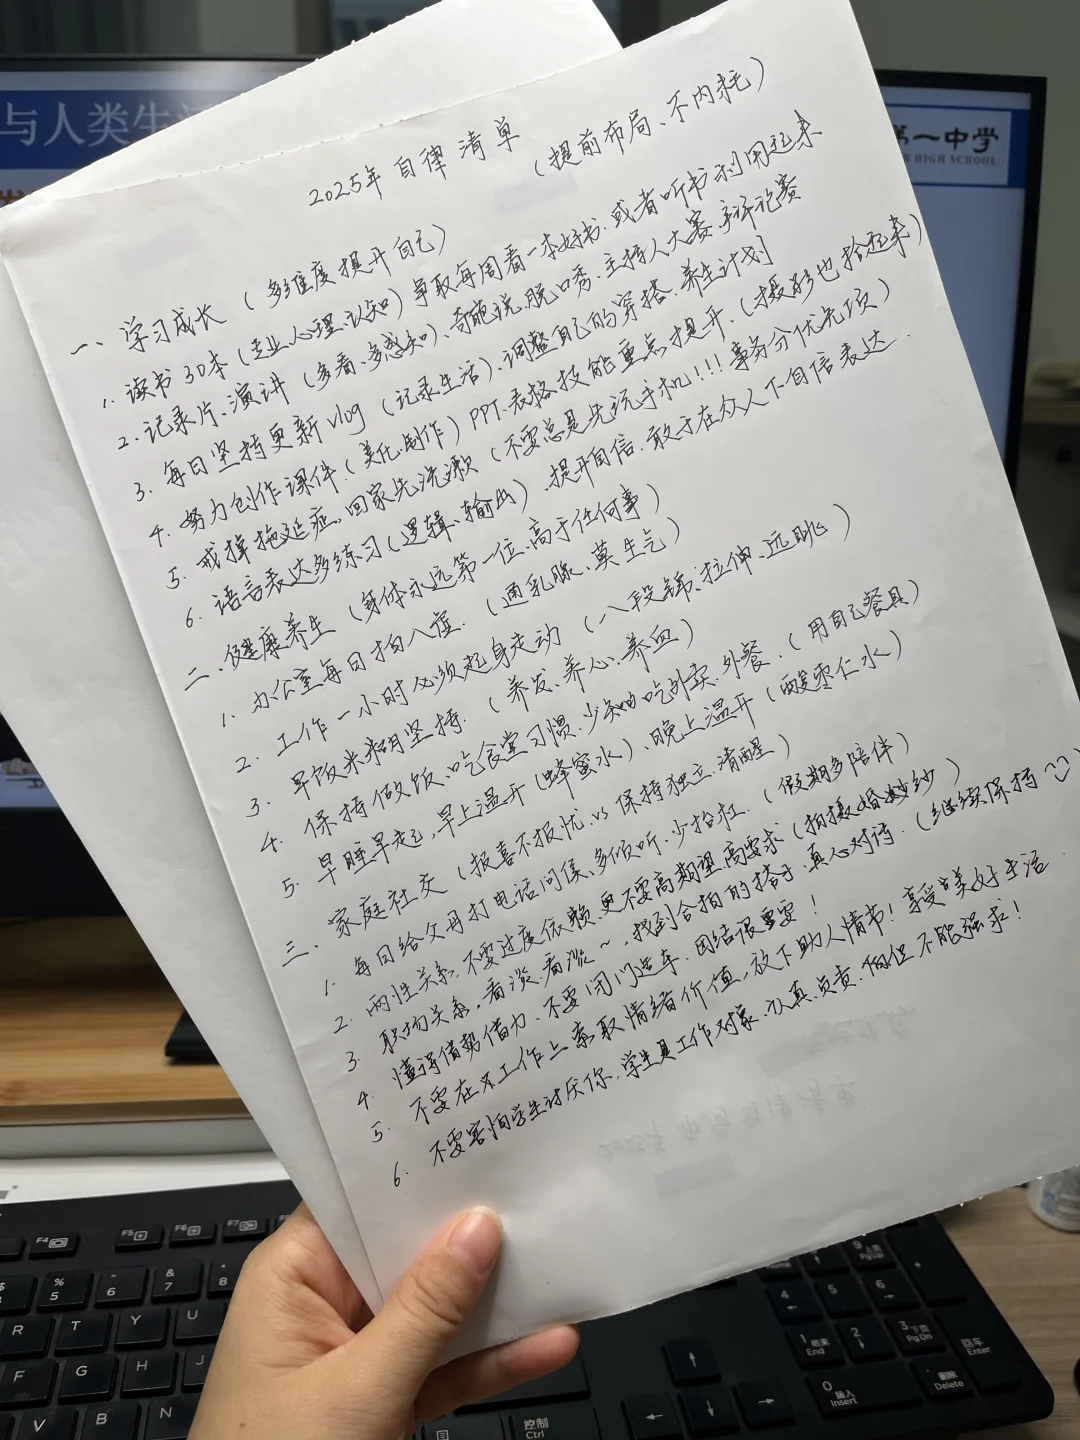 与人类生活
第一中学
HIGH SCHOOL
2025年自律清单
(提前布局、不内耗)
一、学习成长(多维度提升自己)
1. 读书30本(专业、心理、认知)争取每周看一本好书.或者听书利用起来
2. 记录片、演讲(多看、多感知)、奇葩说、脱口秀、主持人大赛、辩论赛
3. 每日坚持更新vlog(记录生活)、调整自己的穿搭、养生计划
4. 努力创作课件.(美化、制作)PPT、表格技能重点提升.(摄影也拾起来)
5. 戒掉拖延症,回家先洗漱(不要总是先玩手机!!!事务分优先项)
6. 语言表达多练习(逻辑、输出)、提升自信.敢于在众人下自信表达.
二、健康养生(身体永远第一位、高于任何事)
1. 办公室每日拍八虚.(通乳腺、莫生气)
2. 工作一小时必须起身走动(八段锦、拉伸、远眺)
3. 早饭米糊坚持.(养发、养心、养血)
4. 保持做饭、吃食堂习惯.少知吃外卖、外餐.(用自己餐具)
5. 早睡早起,早上温开(蜂蜜水)、晚上温开(酸枣仁水)
三、家庭社交(报喜不报忧.vs保持独立.清醒)
1. 每日给父母打电话问侯、多倾听.少抬杠.(假期多陪伴)
2. 两性关系,不要过度依赖.更不要高期望高要求(拍摄婚纱)
3. 职场关系,看淡、看淡~,找到合拍的搭子.真心对待.(继续保持
4. 懂得借势借力、不要闭门造车、团结很重要!
5. 不要在工作上索取情绪价值,放下助人情节!享受美好生活
6. 不要害怕学生讨厌你,学生是工作对象、认真、负责.但不能强求!
F4
F5
F6
F7
5
6
7
8
R
T
Y
U
F
G
H
J
V
B
N
控制
Ctrl
Home
9
上页
PgUp
+
4
5
6
1
结束
End
2
3
下页
PgDn
回车
Enter
0
插入
Insert
删除
Delete